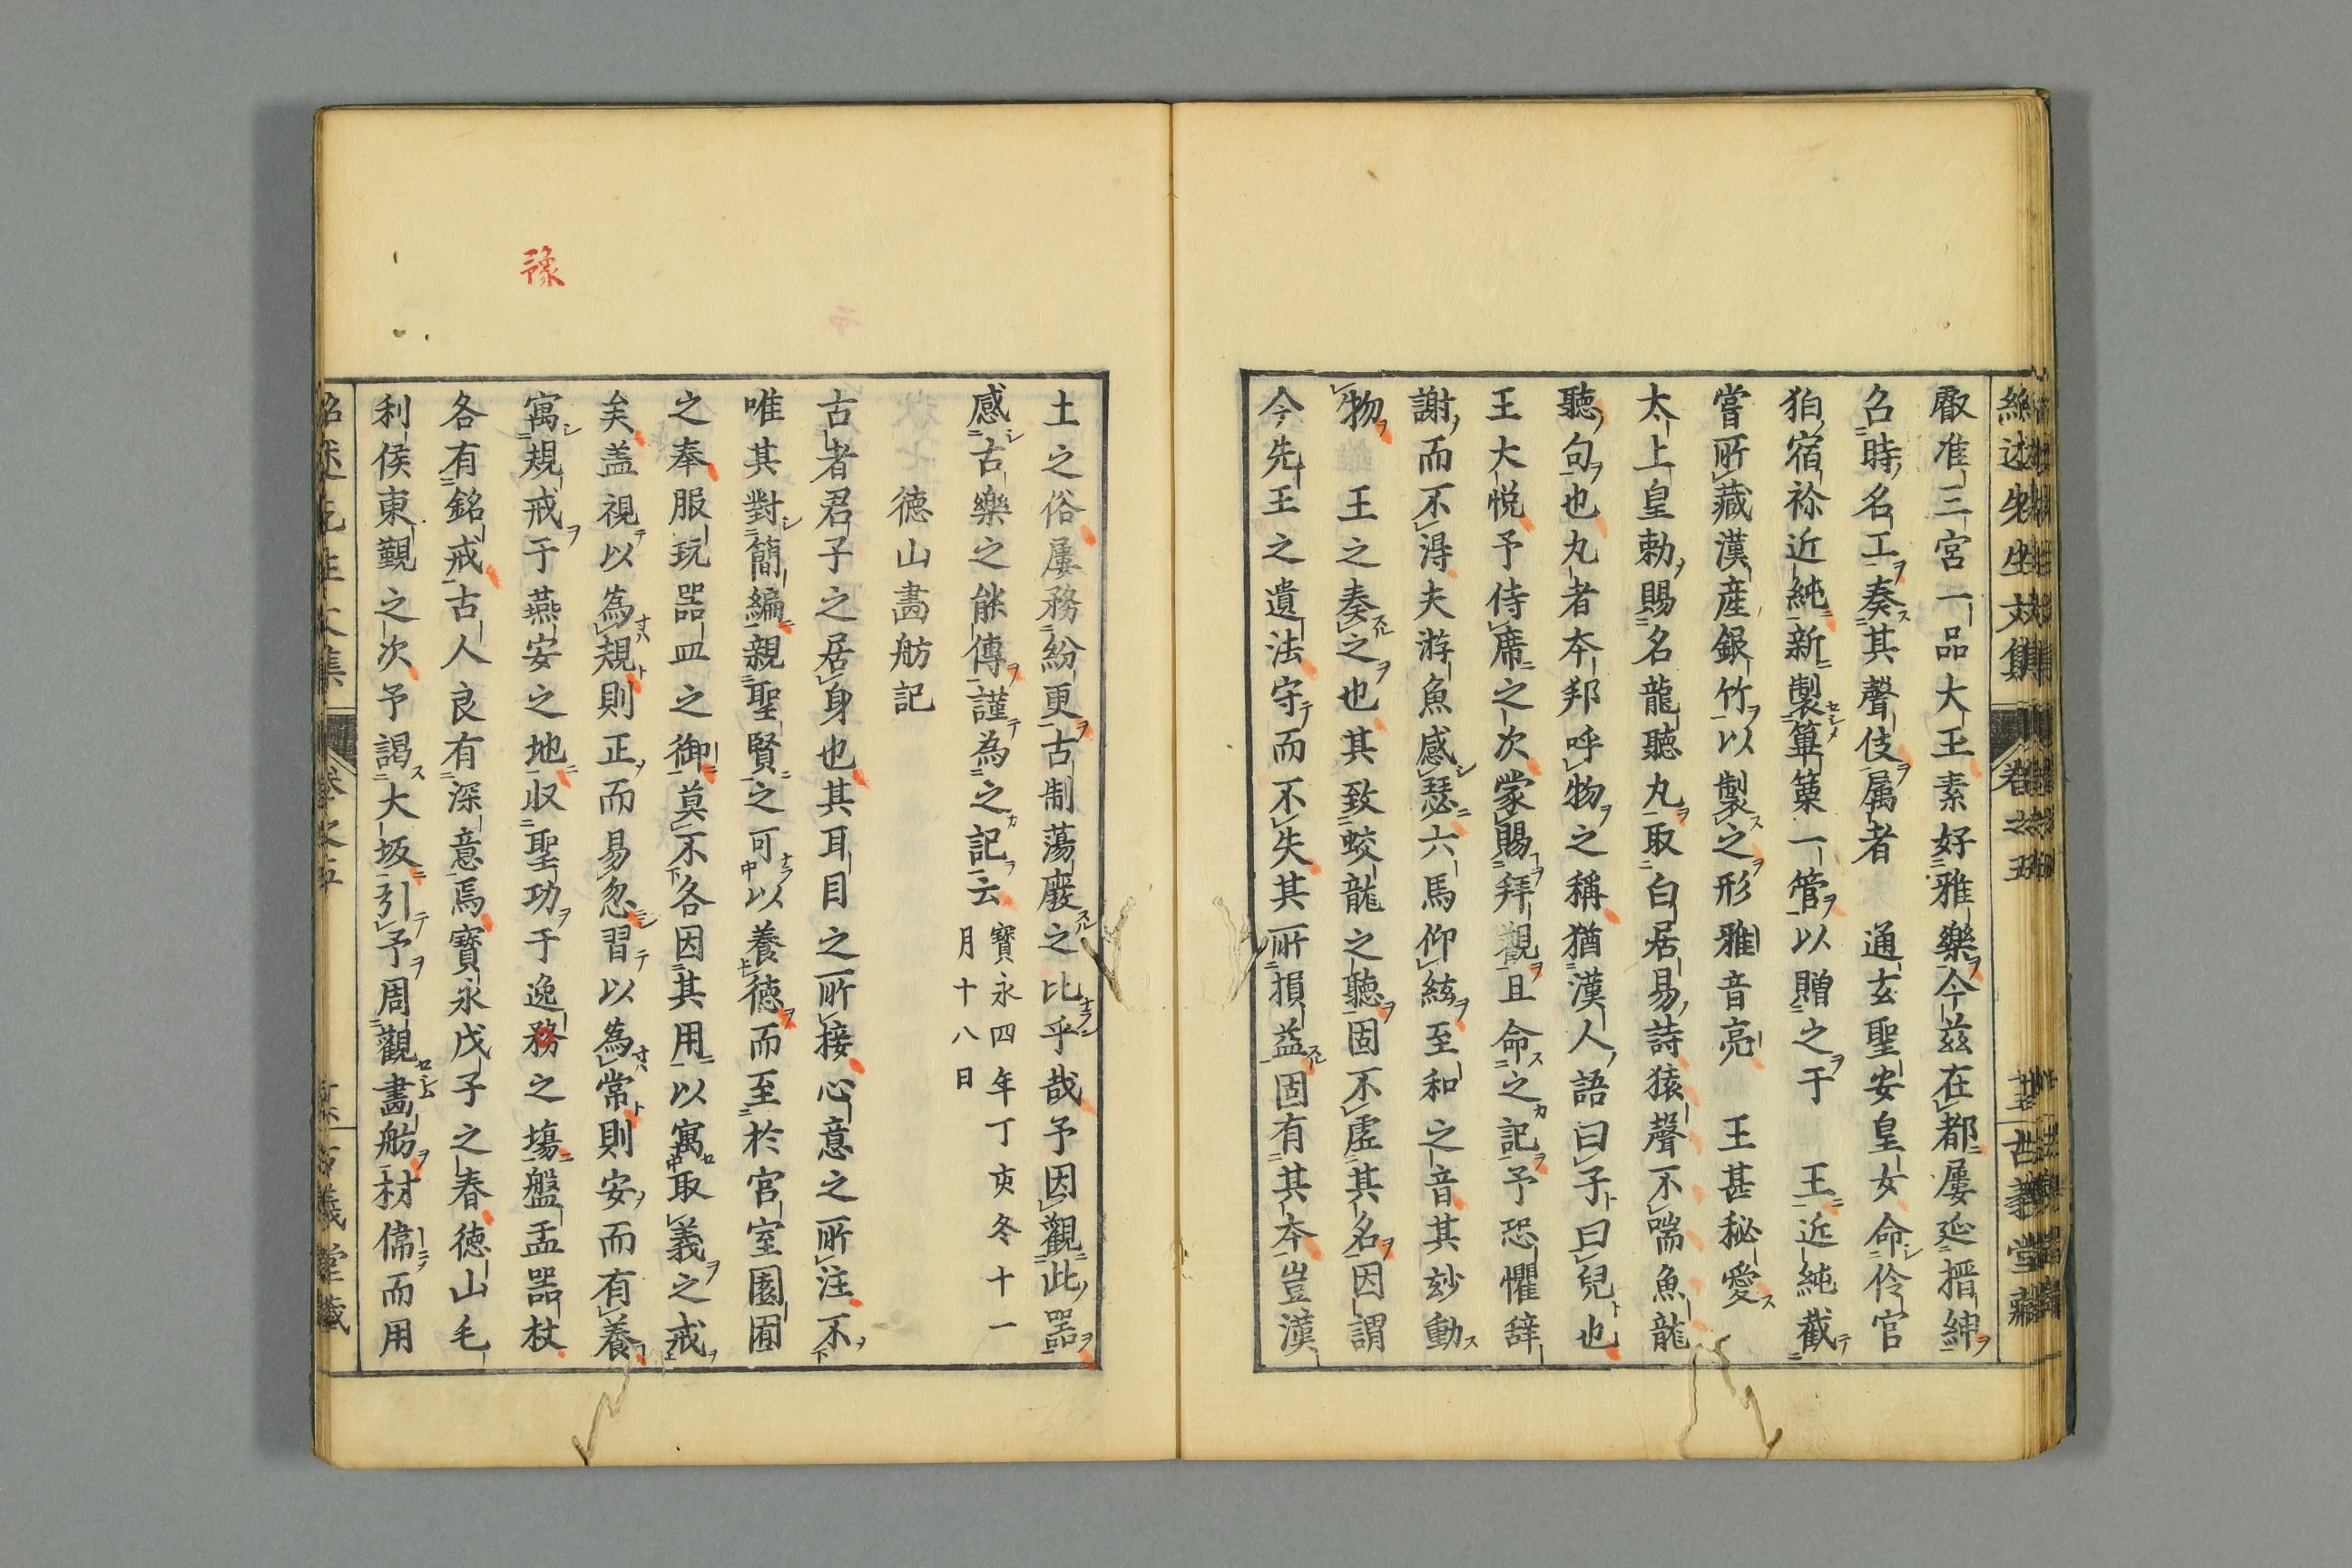 殿准三宮一品大王素好雅樂今茲在都屢延搢紳
名時名工奏其聲伎属者　通玄聖安皇女命伶官
狛宿祢近純新製篳篥一管以贈之于　王近純截
嘗所藏漢產銀竹以製之形雅音亮　王甚秘愛
太上皇勅賜名龍聽丸取白居易詩猿聲不喘魚龍
聽句也丸者本邦呼物之稱猶漢人語曰子曰兒也
王大悅予侍席之次蒙賜拜觀且命之記予恐懼辞
謝而不得夫游魚感瑟六馬仰絃至和之音其玅動
物　王之奏之也其致蛟龍之聽固不虛其名因謂
今先王之遺法守而不失其所損益固有其本豈漢
土之俗屢務紛更古制蕩廢之比乎哉予因觀此器
感古樂之能傳謹為之記云　寶永四年丁亥冬十一
月十八日
德山畵舫記
古者君子之居身也其耳目之所接心意之所注不
唯其對簡編親聖賢之可以養德而至於宮室園囿
之奉服玩器皿之御莫不各因其用以寓取義之戒
矣盖視以為規則正而易忽習以為常則安而有養
寓規戒于燕安之地収聖功于逸務之塲盤盂器杖
各有銘戒古人良有深意焉寶永戊子之春德山毛
利侯東覲之次予謁大坂引予周觀畵舫材偉而用
豫
紹述先生文集
卷之五
古義堂藏